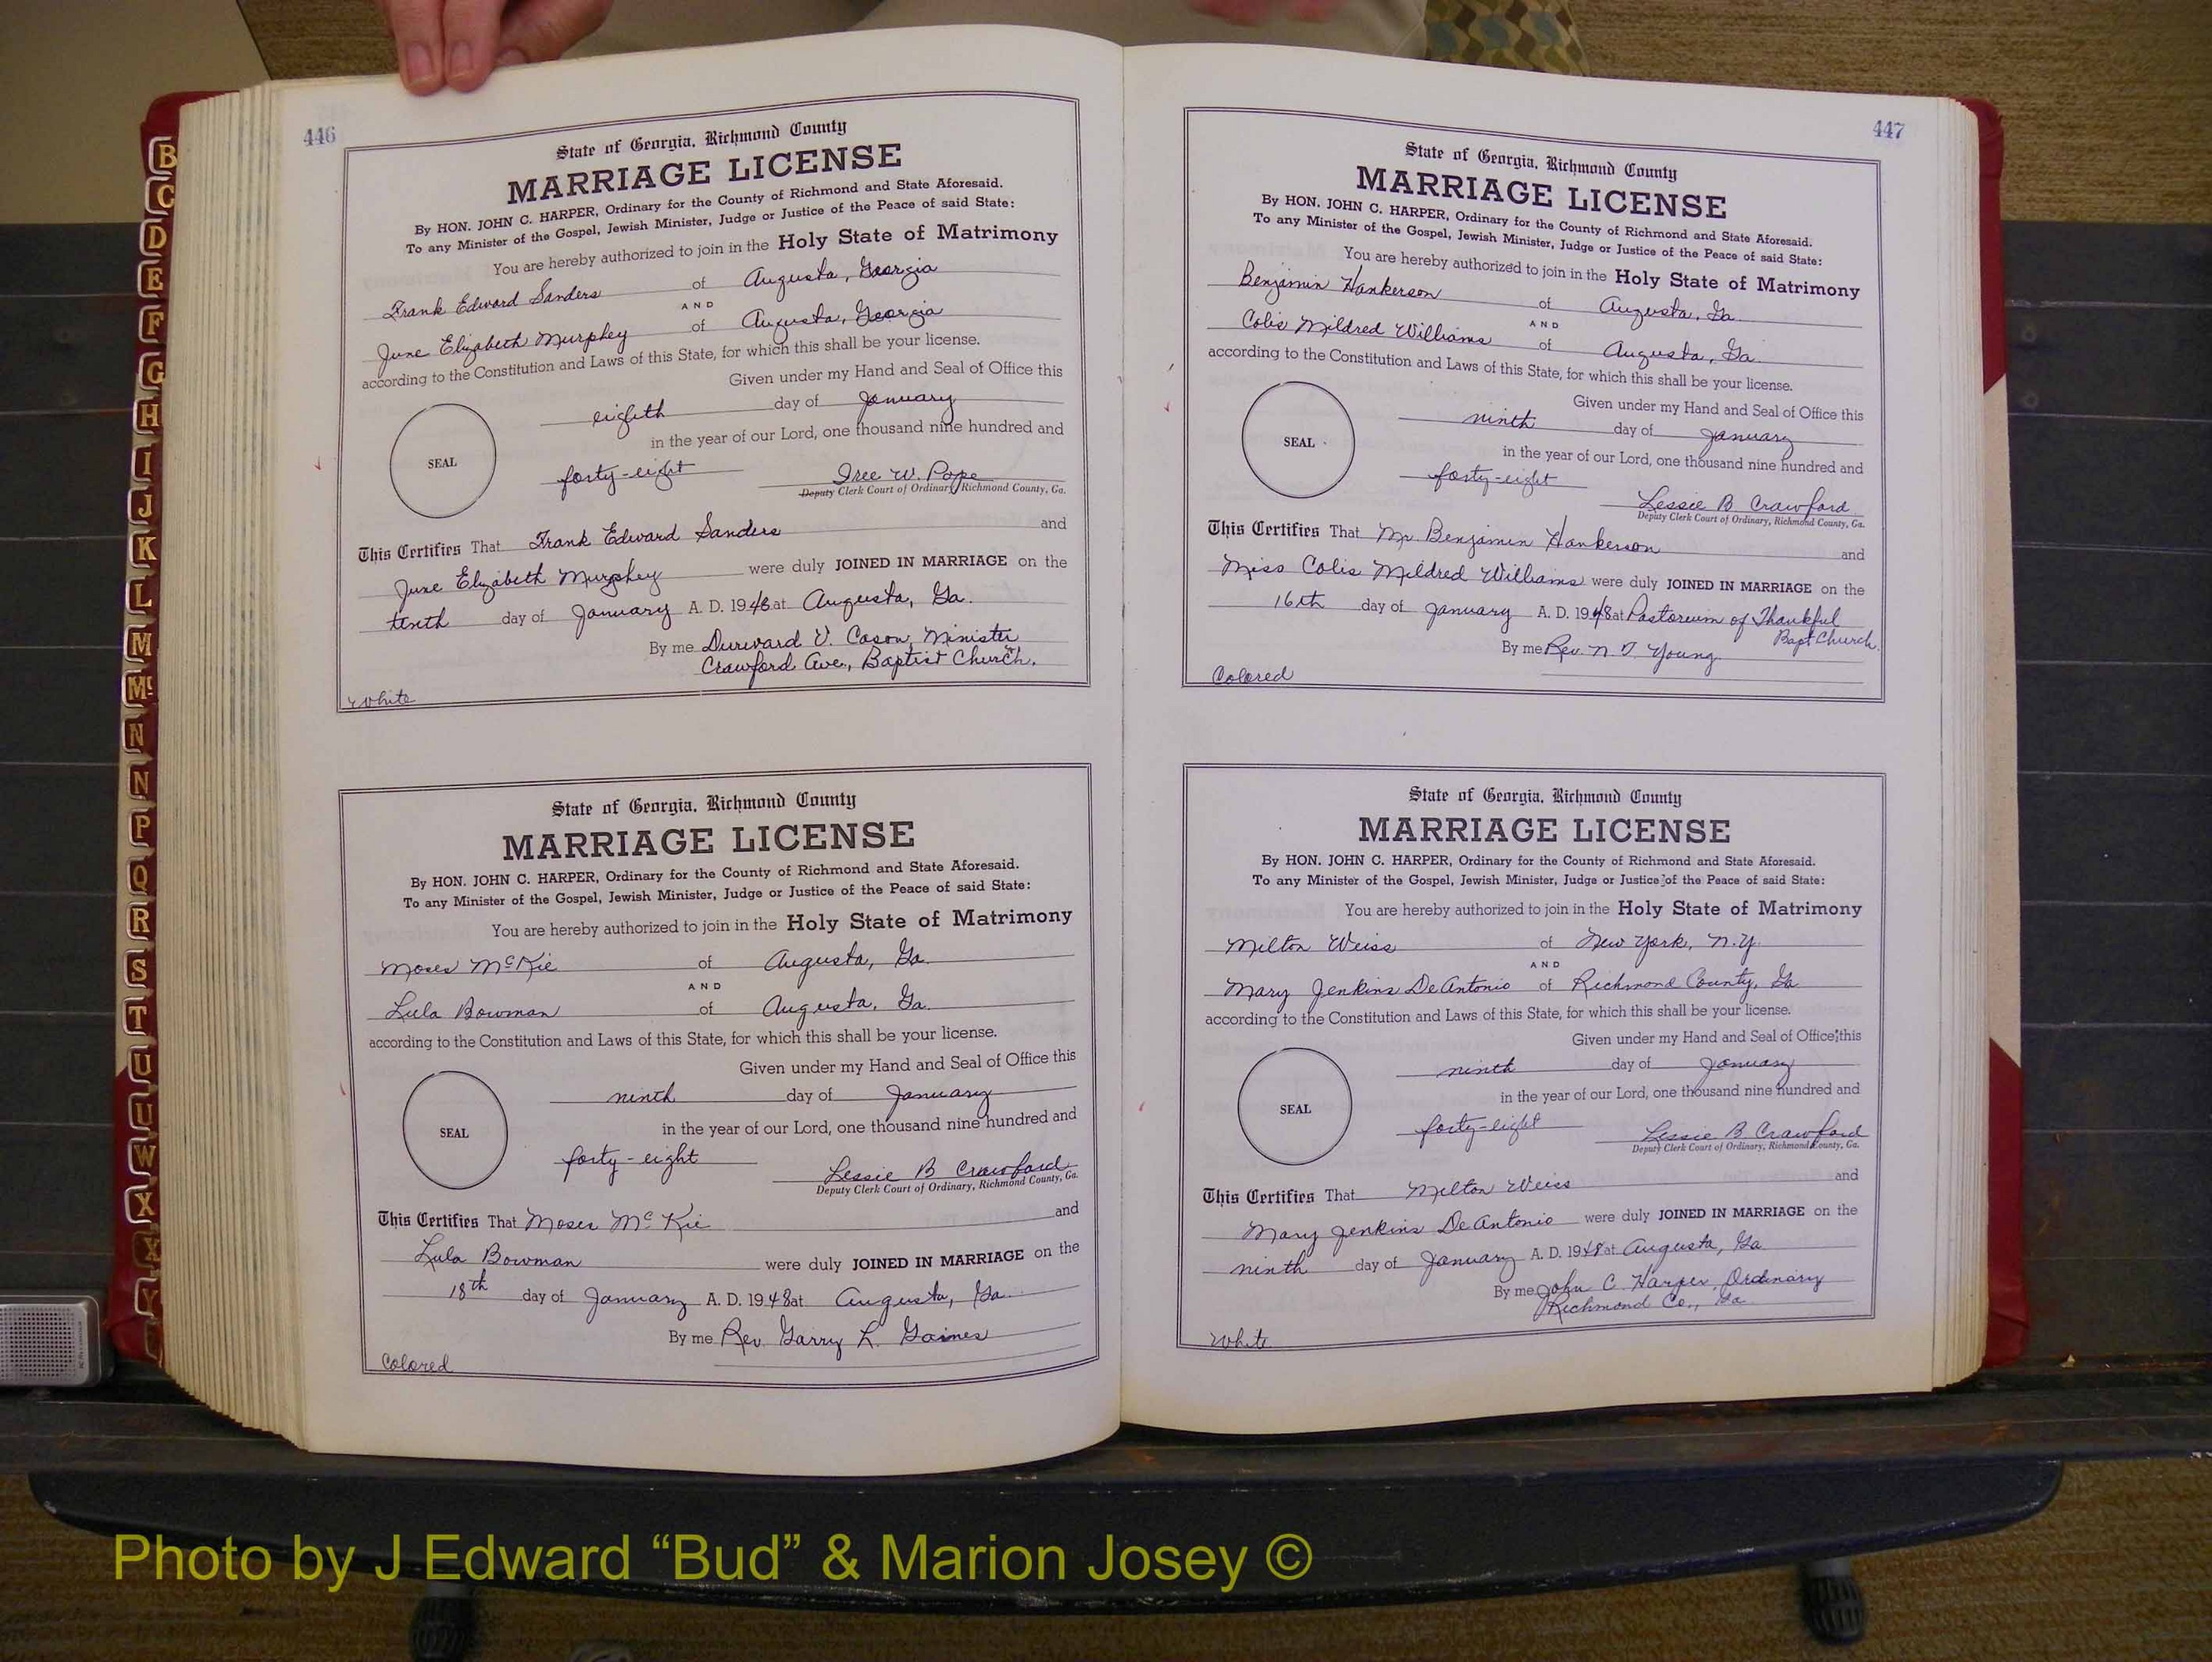 446
State of Georgia, Richmond County
MARRIAGE LICENSE
By HON. JOHN C. HARPER, Ordinary for the County of Richmond and State Aforesaid.
To any Minister of the Gospel, Jewish Minister, Judge or Justice of the Peace of said State:
You are hereby authorized to join in the Holy State of Matrimony
Frank Edward Sanders of Augusta, Georgia
AND
June Elizabeth Murphey of Augusta, Georgia
according to the Constitution and Laws of this State, for which this shall be your license.
Given under my Hand and Seal of Office this
eighth day of January
in the year of our Lord, one thousand nine hundred and
SEAL
forty-eight W. Pope
Deputy Clerk Court of Ordinary Richmond County, Ga.
This Certifies That Frank Edward Sanders and
June Elizabeth Murphey were duly JOINED IN MARRIAGE on the
tenth day of January A. D. 1948 at Augusta, Ga.
By me Durward V. Cason, Minister
Crawford Ave., Baptist Church.
White
State of Georgia, Richmond County
MARRIAGE LICENSE
By HON. JOHN C. HARPER, Ordinary for the County of Richmond and State Aforesaid.
To any Minister of the Gospel, Jewish Minister, Judge or Justice of the Peace of said State:
You are hereby authorized to join in the Holy State of Matrimony
Moses McKie of Augusta, Ga.
AND
Lula Bowman of Augusta, Ga.
according to the Constitution and Laws of this State, for which this shall be your license.
Given under my Hand and Seal of Office this
ninth day of January
in the year of our Lord, one thousand nine hundred and
SEAL
forty-eight Lessie B Crawford
Deputy Clerk Court of Ordinary, Richmond County, Ga.
This Certifies That Moses McKie and
Lula Bowman were duly JOINED IN MARRIAGE on the
18th day of January A. D. 1948 at Augusta, Ga.
By me Rev. Garry L. Gaines
Colored
447
State of Georgia, Richmond County
MARRIAGE LICENSE
By HON. JOHN C. HARPER, Ordinary for the County of Richmond and State Aforesaid.
To any Minister of the Gospel, Jewish Minister, Judge or Justice of the Peace of said State:
You are hereby authorized to join in the Holy State of Matrimony
Benjamin Hankerson of Augusta, Ga.
AND
Colis Mildred Williams of Augusta, Ga.
according to the Constitution and Laws of this State, for which this shall be your license.
Given under my Hand and Seal of Office this
ninth day of January
SEAL
in the year of our Lord, one thousand nine hundred and
forty-eight
Lessie B Crawford
Deputy Clerk Court of Ordinary, Richmond County, Ga.
This Certifies That Mr. Benjamin Hankerson and
Miss Colis Mildred Williams were duly JOINED IN MARRIAGE on the
16th day of January A. D. 1948 at Pastorium of Thankful
Bapt Church.
By me Rev. N. T. Young.
Colored
State of Georgia, Richmond County
MARRIAGE LICENSE
By HON. JOHN C. HARPER, Ordinary for the County of Richmond and State Aforesaid.
To any Minister of the Gospel, Jewish Minister, Judge or Justice of the Peace of said State:
You are hereby authorized to join in the Holy State of Matrimony
Milton Weiss of New York, N.Y.
AND
Mary Jenkins DeAntonio of Richmond County, Ga
according to the Constitution and Laws of this State, for which this shall be your license.
Given under my Hand and Seal of Office this
ninth day of January
in the year of our Lord, one thousand nine hundred and
SEAL
forty-eight Lessie B. Crawford
Deputy Clerk Court of Ordinary, Richmond County, Ga.
This Certifies That Milton Weiss and
Mary Jenkins DeAntonio were duly JOINED IN MARRIAGE on the
ninth day of January A. D. 1948 at Augusta, Ga
By me John C. Harper, Ordinary
Richmond Co., Ga
White
B
C
D
E
F
G
H
I
J
K
L
M
Mc
N
N
P
Q
R
S
T
U
U
W
X
X
Y
Photo by J Edward “Bud” & Marion Josey ©